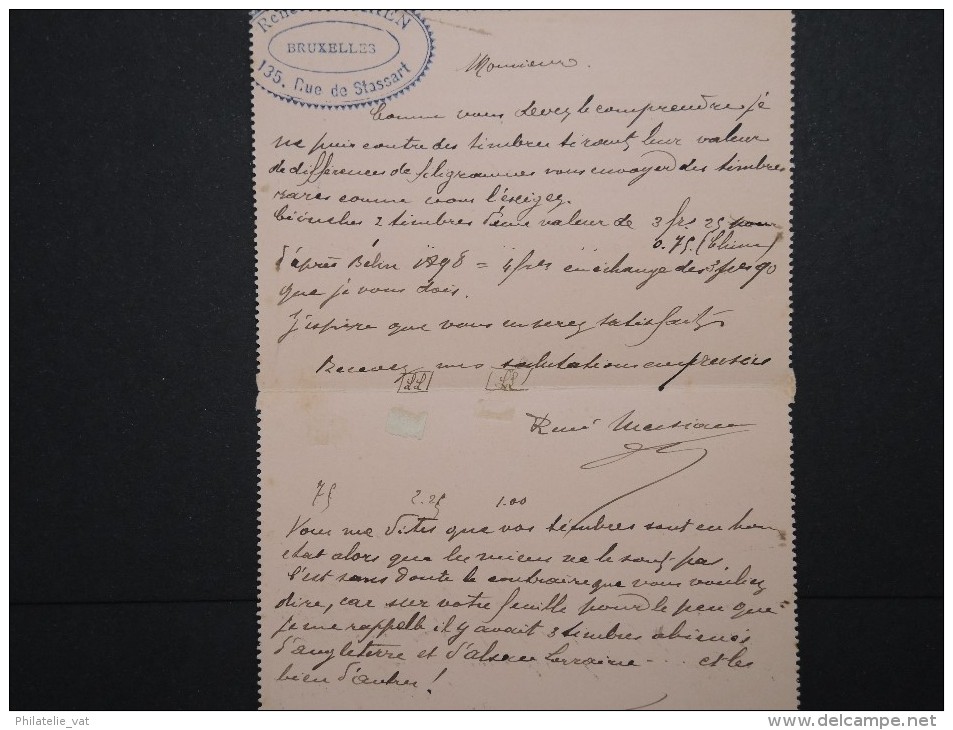 René
BRUXELLES
135. Rue de Stassart
Monsieur.
Comme vous devez le comprendre je
ne puis contre des timbres tirant leur valeur
de différences de filigrammes vous envoyer des timbres
rares comme vous l'exigez.
Ci-inclus 2 timbres d'une valeur de 3 frs 25 pour
0.75 (Chine)
d'après Bélin 1898 = 4 frs en échange des 3 frs 90
que je vous dois.
J'espère que vous en serez satisfait
Recevez mes salutations empressées
René
75 2.25 1.00
Vous me dites que vos timbres sont en bon
état alors que les miens ne le sont pas,
c'est sans doute le contraire que vous vouliez
dire, car sur votre feuille pour le peu que
je me rappelle il y avait 3 timbres abîmés
d'angleterre et d'alsace Lorraine ... et
bien d'autres!
Philatelie_vat
www.delcampe.net